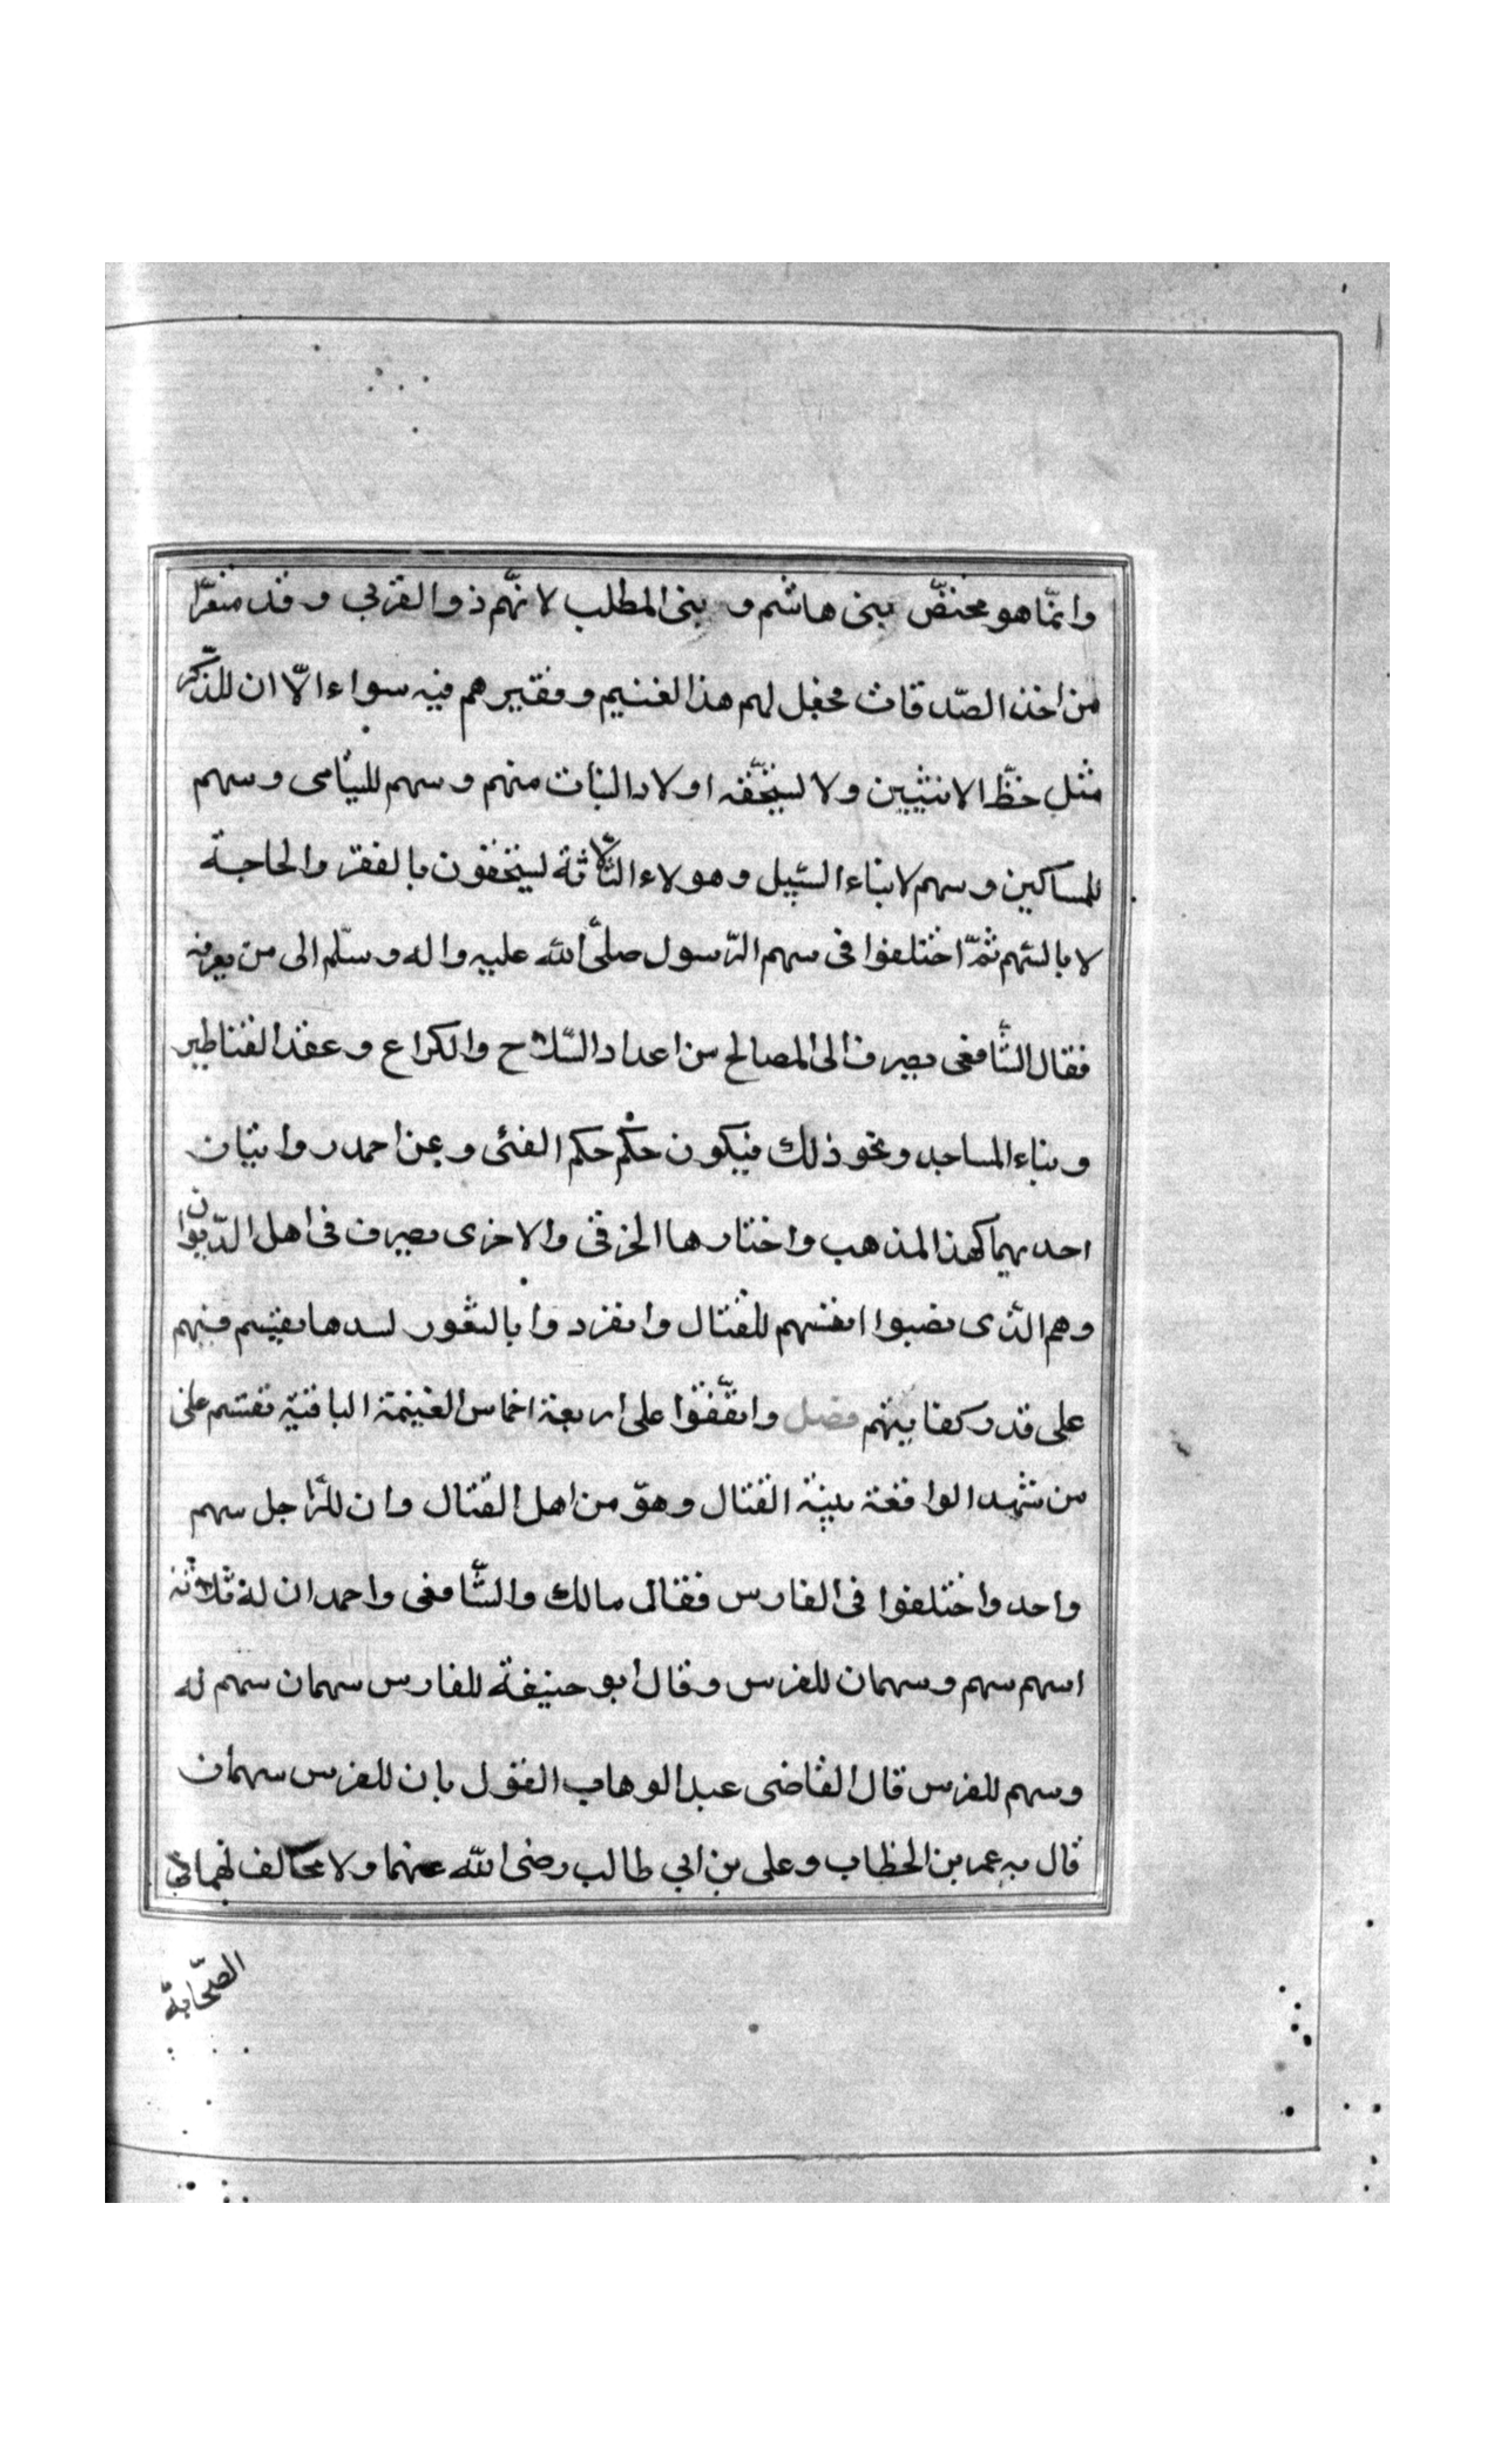 وانّما هو مختصّ ببنى هاشم و بنى المطلب لانّهم ذوا القربى وقد منعوا
من اخذ الصّدقات فجعل لهم هذا لغنيهم وفقيرهم فيه سواء الّا ان للذّكر
مثل حظّ الانثيين ولا يستحقّه اولاد البنات منهم وسهم لليتامى وسهم
للمساكين وسهم لابناء السّبيل وهولاء الثّلاثة يستحقون بالفقر والحاجة
لا بالسهم ثمّ اختلفوا فى سهم الرّسول صلّى الله عليه واله وسلّم الى من يصرف
فقال الشّافعى يصرف الى المصالح من اعداد السّلاح والكراع وعقد القناطير
وبناء المساجد ونحو ذلك فيكون حكم حكم الفئى وعن احمد روايتان
احديهما كهذا المذهب واختارها الخرقى والاخرى يصرف فى اهل الدّيوان
وهم الّذى نصبوا انفسهم للقتال وانفردوا بالثغور لسدها يقسم فيهم
على قدر كفايتهم فصل واتّفقوا على اربعة اخماس الغنيمة الباقية تقسم على
من شهد الواقعة بنية القتال وهوّ من اهل القتال وان للرّاجل سهم
واحد واختلفوا فى الفارس فقال مالك والشّافعى واحمد ان له ثلاثة
اسهم سهم وسهمان للفرس وقال ابو حنيفة للفارس سهمان سهم له
وسهم للفرس قال القاضى عبد الوهاب القول بان للفرس سهمان
قال به عمر بن الخطاب وعلى بن ابى طالب رضى الله عنهما ولا مخالف لهما فى
الصّحابة